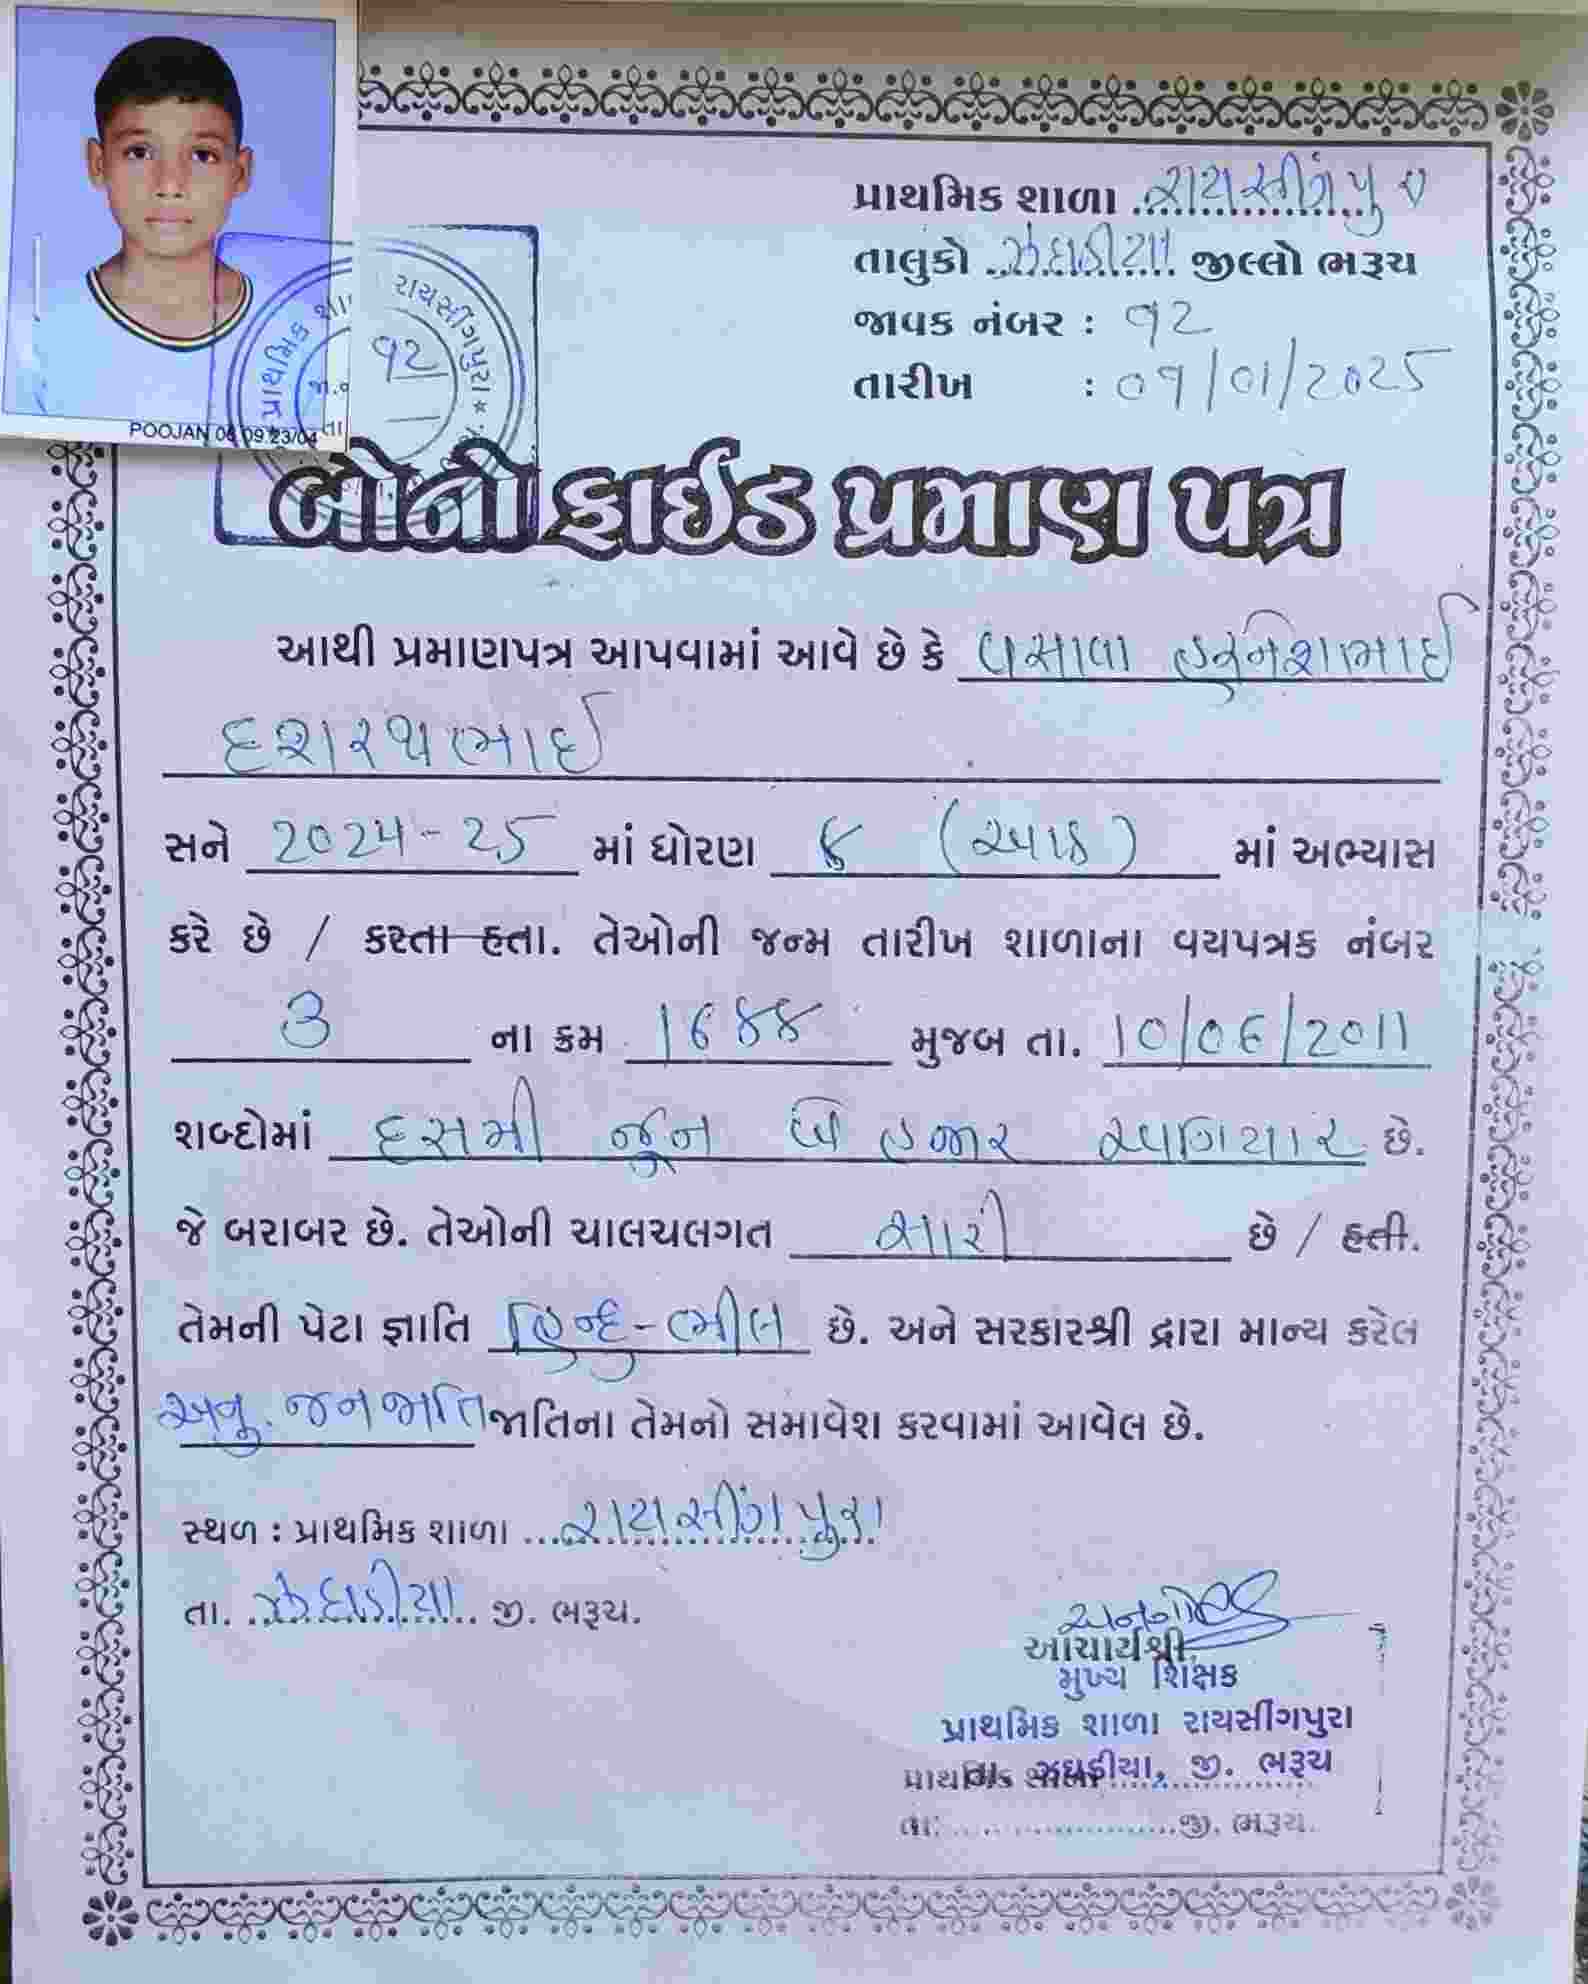 પ્રાથમિક શાળા રાયસીંગપુરા
તાલુકો ઝઘડીયા જીલ્લો ભરૂચ
જાવક નંબર : ૧૨
તારીખ : ૦૧/01/2025
પ્રાથમિક શા
રાયસીંગપુરા *
જા.
૧૨
તા
POOJAN 06.09.23/04
બોનોફાઈડ પ્રમાણ પત્ર
આથી પ્રમાણપત્ર આપવામાં આવે છે કે વસાવા
દશરથભાઈ
સને 2024-25 માં ધોરણ ૮ (આઠ) માં અભ્યાસ
કરે છે / કરતા હતા. તેઓની જન્મ તારીખ શાળાના વયપત્રક નંબર
૩ ના ક્રમ 1644 મુજબ તા. 10/06/2011
શબ્દોમાં દસમી જૂન બે હજાર અગિયાર છે.
જે બરાબર છે. તેઓની ચાલચલગત સારી છે / હતી.
તેમની પેટા જ્ઞાતિ હિન્દુ-ભીલ છે. અને સરકારશ્રી દ્વારા માન્ય કરેલ
અનુ. જનજાતિ જાતિના તેમનો સમાવેશ કરવામાં આવેલ છે.
સ્થળ : પ્રાથમિક શાળા રાયસીંગપુરા
તા. ઝઘડીયા જી. ભરૂચ.
આચાર્યશ્રી,
મુખ્ય શિક્ષક
પ્રાથમિક શાળા રાયસીંગપુરા
તા. ઝઘડીયા, જી. ભરૂચ
પ્રાથમિક શાળા
તા. જી. ભરૂચ.